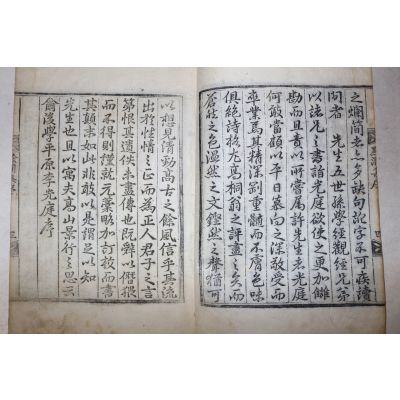 之爛簡者亦多訣句訛字不可疾讀
間者 先生五世孫學經觀經兄弟
以法兄之書諸光庭欲使之更加讎
勘而且責以所嘗屬許先生者光庭
何敢當顧以平日慕向之深敬受而
卒業焉其精深重髓而不膚色味
俱絕詩格尤高桐翁之評盡之矣而
蒼然之色溫然之文鏗然之聲猶可
以想見清勁高古之餘風信乎其流
出於性情之正而為正人君子之言
第恨其遺佚未盡傳也既辭以僭猥
而不得則謹就元藁略加訂校而書
其顛末如此非敢以是謂足以知
先生也且以寓夫高山景行之思云
後學平原李光庭序